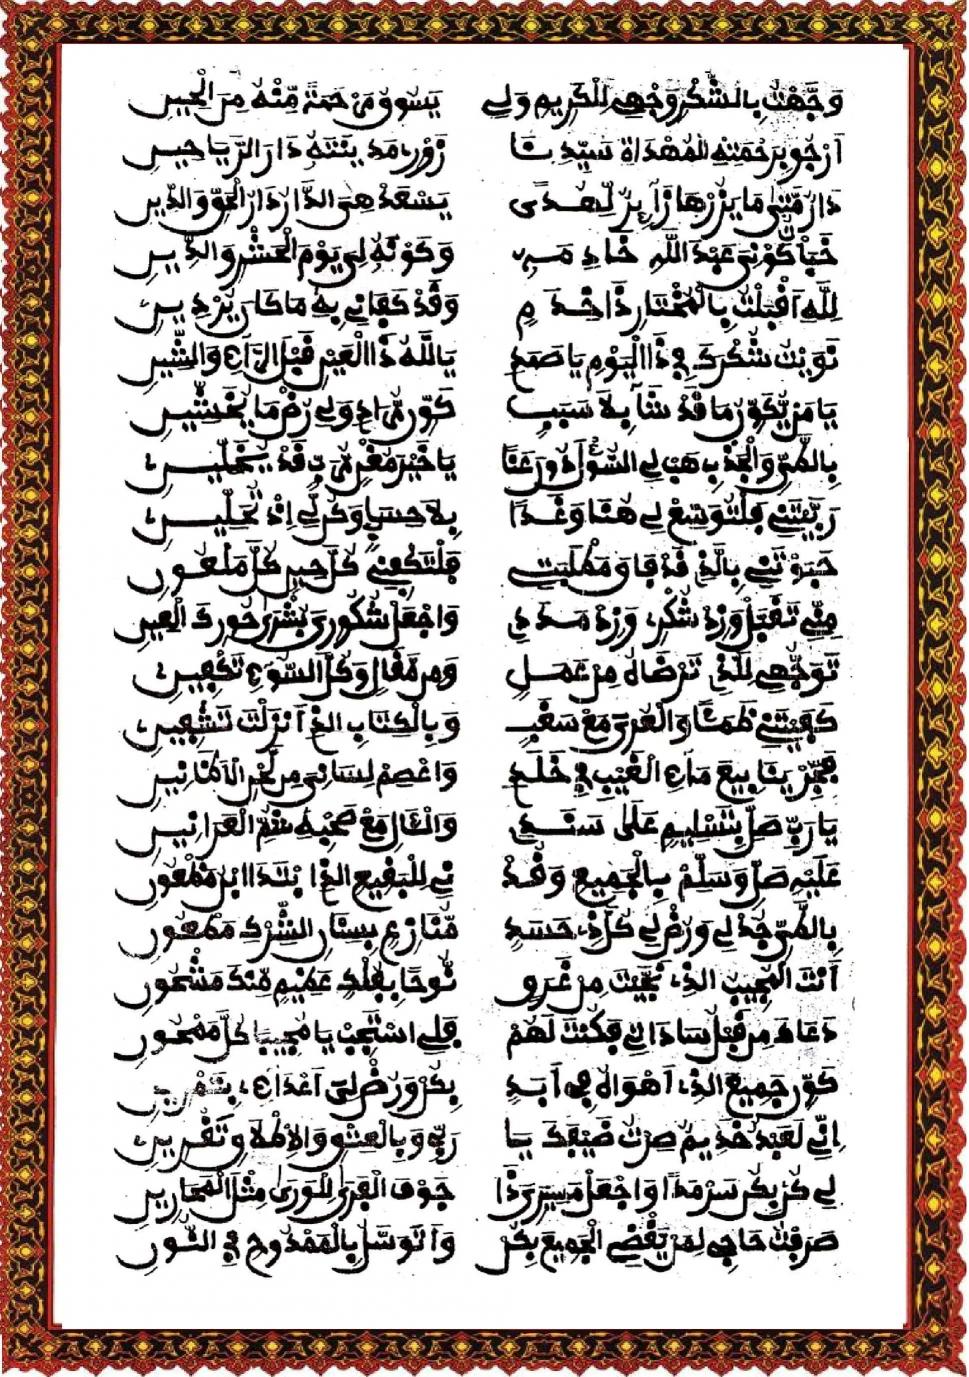 وَجَّهْتُ بِالشُّكْرِ وَجْهِي لِلْكَرِيمِ وَلِي يَسُوقُ مَرْحَمَةً مِّنْهُ مِنَ الْحِينِ
أَرْجُو بِرَحْمَتِهِ الْمُهْدَاةِ سَيِّدِنَا زَوْرِي مَدِينَتَهُ دَارَ الرَّيَاحِينِ
دَارٌ مَّتَى مَا يَزُرْهَا زَائِرٌ لِّهُدًى يَسْعَدْ هِيَ الدَّارُ دَارُ الْحَقِّ وَالدِّينِ
كَوْنِي عَبْدَ اللَّهِ خَادِمَهُ وَكَوْنَهُ لِي يَوْمَ الْحَشْرِ وَالدِّينِ
لِلَّهِ أَقْبَلْتُ بِالْمُخْتَارِ ذَا خِدَمٍ وَقَدْ كَفَانِي بِهِ مَا كَانَ يُرْدِينِي
نَوَيْتُ شُكْرَكَ فِي ذَا الْيَوْمِ يَا صَمَدُ يَا اللَّهُ ذَا الْعَيْنِ قَبْلَ الرَّاءِ وَالشِّينِ
يَا مَنْ يُكَوِّنُ مَا قَدْ شَاءَ بِلَا سَبَبٍ كَوِّنْ مُرَادِي وَلِي رُضْ مَا يُخَشِّينِي
بِالْمَنِّ وَالْجَذْبِ هَبْ لِي السُّؤْلَ دُونَ عَنًا يَا خَيْرَ مُغْنٍ مُرَبٍّ قَدْ يُحَلِّينِي
رَبَّيْتَنِي فَلْتُوَسِّعْ لِي هُنَا وَغَدًا بِلَا حِسَابٍ وَكُنْ لِي إِذْ تُحَلِّينِي
حَبَوْتَنِي بِالَّذِي قَدْ فَاقَ مَهْلَبَتِي فَلْتَكْفِنِي كُلَّ حِينٍ كُلَّ مَلْعُونِ
مِنِّي تَقَبَّلْ وَزِدْ شُكْرِي وَزِدْ مَدَدِي وَاجْعَلْ شَكُورِيَ بُشْرَى حُورِكَ الْعِينِ
تَوَجُّهِي لِلَّذِي تَرْضَاهُ مِنْ عَمَلٍ وَمِنْ مَقَالٍ وَكُلَّ السُّوءِ تَكْفِينِي
كَفَيْتَنِي ظَمَئًا وَالْعُرْيَ مَعْ سَغَبٍ وَبِالْكِتَابِ الَّذِي أَنْزَلْتَ تَشْفِينِي
فَجِّرْ يَنَابِيعَ مَاءِ الْغَيْبِ فِي خَلَدِي وَاعْصِمْ لِسَانِيَ مِنْ لَحْنِ الْأَفَانِينِ
يَا رَبِّ صَلِّ بِتَسْلِيمٍ عَلَى سَنَدِي وَالْآلِ مَعْ صَحْبِهِ شُمِّ الْعَرَانِينِ
عَلَيْهِ صَلِّ وَسَلِّمْ بِالْجَمِيعِ وَقُدْ نِي لِلْبَقِيعِ الَّذِي ابْنَ مَظْعُونِ
بِالْمَنِّ جُدْ لِي وَرُضْ لِي كُلَّ ذِي حَسَدٍ مُّنَازِعٍ بِسِنَانِ الشِّرْكِ مَطْعُونِ
أَنْتَ الْمُجِيبُ الَّذِي نَجَّيْتَ مِنْ غَرَقٍ نُّوحًا بِفُلْكٍ عَظِيمٍ مِّنْكَ مَشْحُونِ
دَعَاكَ مِنْ قَبْلُ سَادَاتِي فَكُنْتَ لَهُمْ فَلِي اسْتَجِبْ يَا مُجِيبًا كُلَّ مَمْحُونِ
كَوِّنْ جَمِيعَ الَّذِي أَهْوَاهُ فِي أَبَدِي بِكُنْ وَرُضْ لِيَ أَعْدَائِي
إِنِّي لَعَبْدٌ خَدِيمٌ صِرْتُ ضَيْفَكَ يَا رَبِّي وَبِالْعَفْوِ وَالْإِفْلَاهِ وَتَقْرِينِي
لِي كُنْ بِكُنْ سَرْمَدًا وَاجْعَلْ مَسِيرِيَ ذَا جَوْفَ الْقُرَى لِلْوَرَى مِثْلَ الْمَجَارِينِ
صَرَفْتُ حَاجِي لِمَنْ يَقْضِي الْجَمِيعَ بِكُنْ وَأَتَوَسَّلْ بِالْمَمْدُوحِ فِي النُّونِ